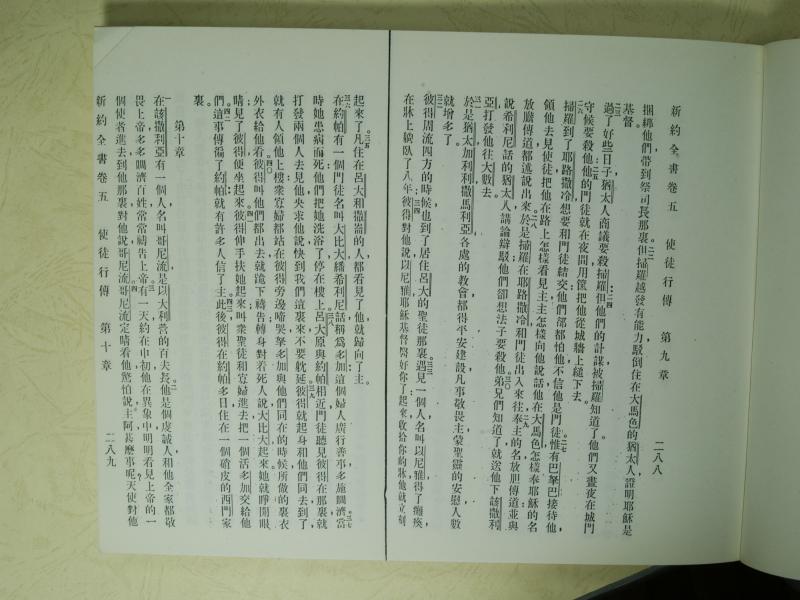 新約全書卷五　使徒行傳　第九章　二八八
捆綁他們帶到祭司長那裏但掃羅越發有能力駁倒住在大馬色的猶太人證明耶穌是
基督
過了好些日子猶太人商議要殺掃羅但他們的計謀被掃羅知道了他們又晝夜在城門
守候要殺他他的門徒就在夜間用筐把他從城牆上縋下去
掃羅到了耶路撒冷想要和門徒結交他們都怕他不信他是門徒惟有巴拏巴接待他
領他去見使徒把他在路上怎樣看見主主怎樣向他說話他在大馬色怎樣奉耶穌的名
放膽傳道都述說出來於是掃羅在耶路撒冷和門徒出入來往奉主的名放胆傳道並與
說希利尼話的猶太人講論辯駁他們卻想法子要殺他弟兄們知道了就送他下該撒利
亞打發他往大數去
於是猶太加利利撒馬利亞各處的教會都得平安建設凡事敬畏主蒙聖靈的安慰人數
就增多了
彼得周流四方的時候也到了居住呂大的聖徒那裏遇見一個人名叫以尼雅得了癱瘓
在牀上躺臥了八年彼得對他說以尼雅耶穌基督醫好你了起來收拾你的牀他就立刻
起來了凡住在呂大和撒崙的人都看見了他就歸向了主
在約帕有一個門徒名叫大比大繙希利尼話稱爲多加這個婦人廣行善事多施賙濟當
時她患病而死他們把她洗浴了停在樓上呂大原與約帕相近門徒聽見彼得在那裏就
打發兩個人去見他央求他說快到我們這裏來不要躭延彼得就起身和他們同去到了
就有人領他上樓衆寡婦都站在彼得旁邊啼哭拏多加與他們同在的時候所做的裏衣
外衣給他看彼得叫他們都出去就跪下禱告轉身對着死人說大比大起來她就睜開眼
睛見了彼得便坐起來彼得伸手扶她起來叫衆聖徒和寡婦進去把一個活多加交給他
們這事傳徧了約帕就有許多人信了主此後彼得在約帕多日住在一個硝皮的西門家
裏
第十章
在該撒利亞有一個人名叫哥尼流是以大利營的百夫長他是個虔誠人和他全家都敬
畏上帝多多賙濟百姓常常禱告上帝有一天約在申初他在異象中明明看見上帝的一
個使者進去到他那裏對他說哥尼流哥尼流定睛看他驚怕說主阿甚麽事呢天使對他
新約全書卷五　使徒行傳　第十章　二八九